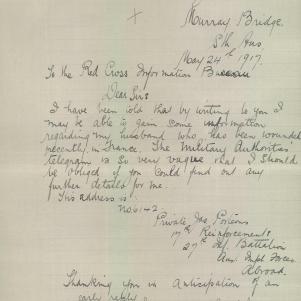 Murray Bridge.
Sth Aus
May 24th 1917.
To the Red Cross Information Bureau
Dear Sirs
I have been told that by writing to you I
may be able to gain some information
regarding my husband who has been wounded
recently in France. The Military Authorities'
telegram is so very vague that I should
be obliged if you could find out any
further details for me.
His address is
Private Jas.
17th Reinforcements
27th Inf. Battalion
Aus. Impl Forces
Abroad.
Thanking you in anticipation of an
early reply